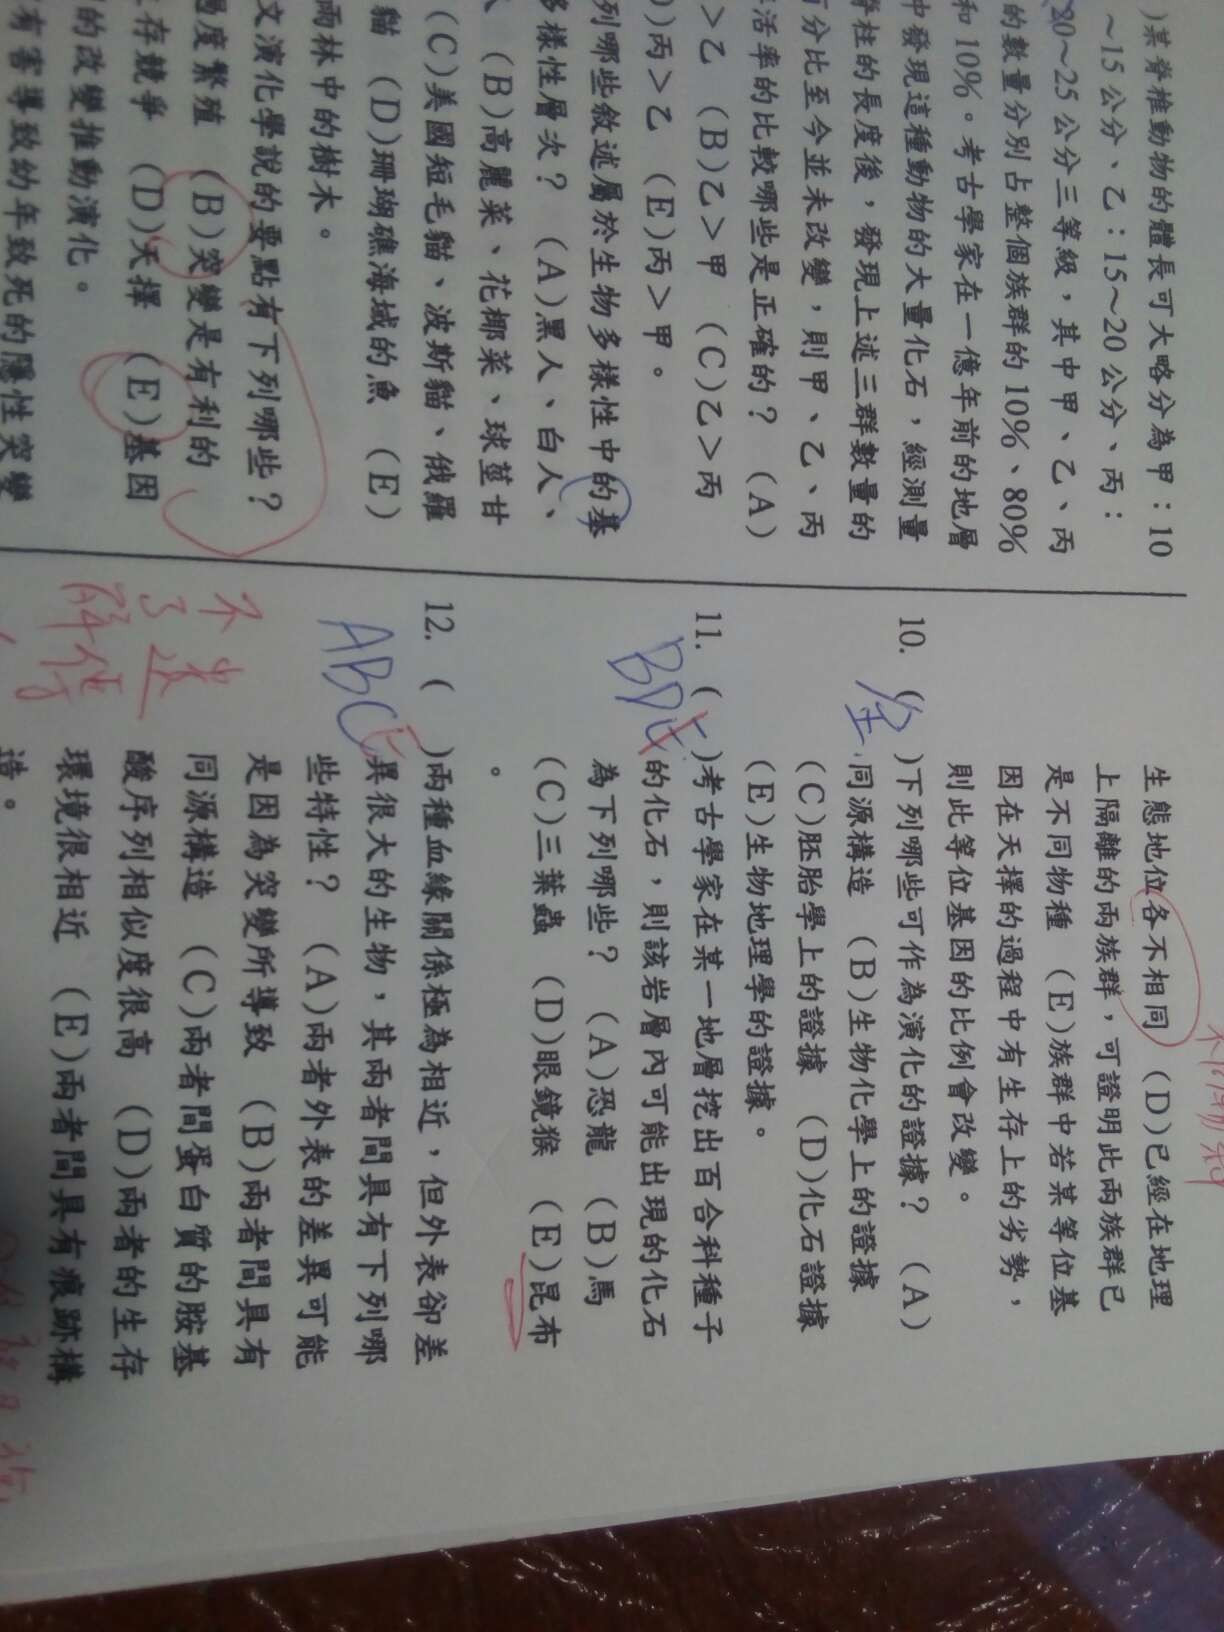 )某脊椎動物的體長可大略分為甲：10
～15公分、乙：15～20公分、丙：
20～25公分三等級，其中甲、乙、丙
的數量分別占整個族群的10%、80%
和10%。考古學家在一億年前的地層
中發現這種動物的大量化石，經測量
脊柱的長度後，發現上述三群數量的
百分比至今並未改變，則甲、乙、丙
活率的比較哪些是正確的？ (A)
＞乙 (B)乙＞甲 (C)乙＞丙
)丙＞乙 (E)丙＞甲。
列哪些敘述屬於生物多樣性中的基
多樣性層次？ (A)黑人、白人、
(B)高麗菜、花椰菜、球莖甘
(C)美國短毛貓、波斯貓、俄羅
貓 (D)珊瑚礁海域的魚 (E)
雨林中的樹木。
文演化學說的要點有下列哪些？
過度繁殖 (B)突變是有利的
存競爭 (D)天擇 (E)基因
的改變推動演化。
有害導致幼年致死的隱性突變
生態地位各不相同 (D)已經在地理
上隔離的兩族群，可證明此兩族群已
是不同物種 (E)族群中若某等位基
因在天擇的過程中有生存上的劣勢，
則此等位基因的比例會改變。
10. ( 全 )下列哪些可作為演化的證據？ (A)
同源構造 (B)生物化學上的證據
(C)胚胎學上的證據 (D)化石證據
(E)生物地理學的證據。
11. ( BDE )考古學家在某一地層挖出百合科種子
的化石，則該岩層內可能出現的化石
為下列哪些？ (A)恐龍 (B)馬
(C)三葉蟲 (D)眼鏡猴 (E)昆布
。
12. ( ABCE )兩種血緣關係極為相近，但外表卻差
異很大的生物，其兩者間具有下列哪
些特性？ (A)兩者外表的差異可能
是因為突變所導致 (B)兩者間具有
同源構造 (C)兩者間蛋白質的胺基
酸序列相似度很高 (D)兩者的生存
環境很相近 (E)兩者間具有痕跡構
造。
不
了
解
遺
傳